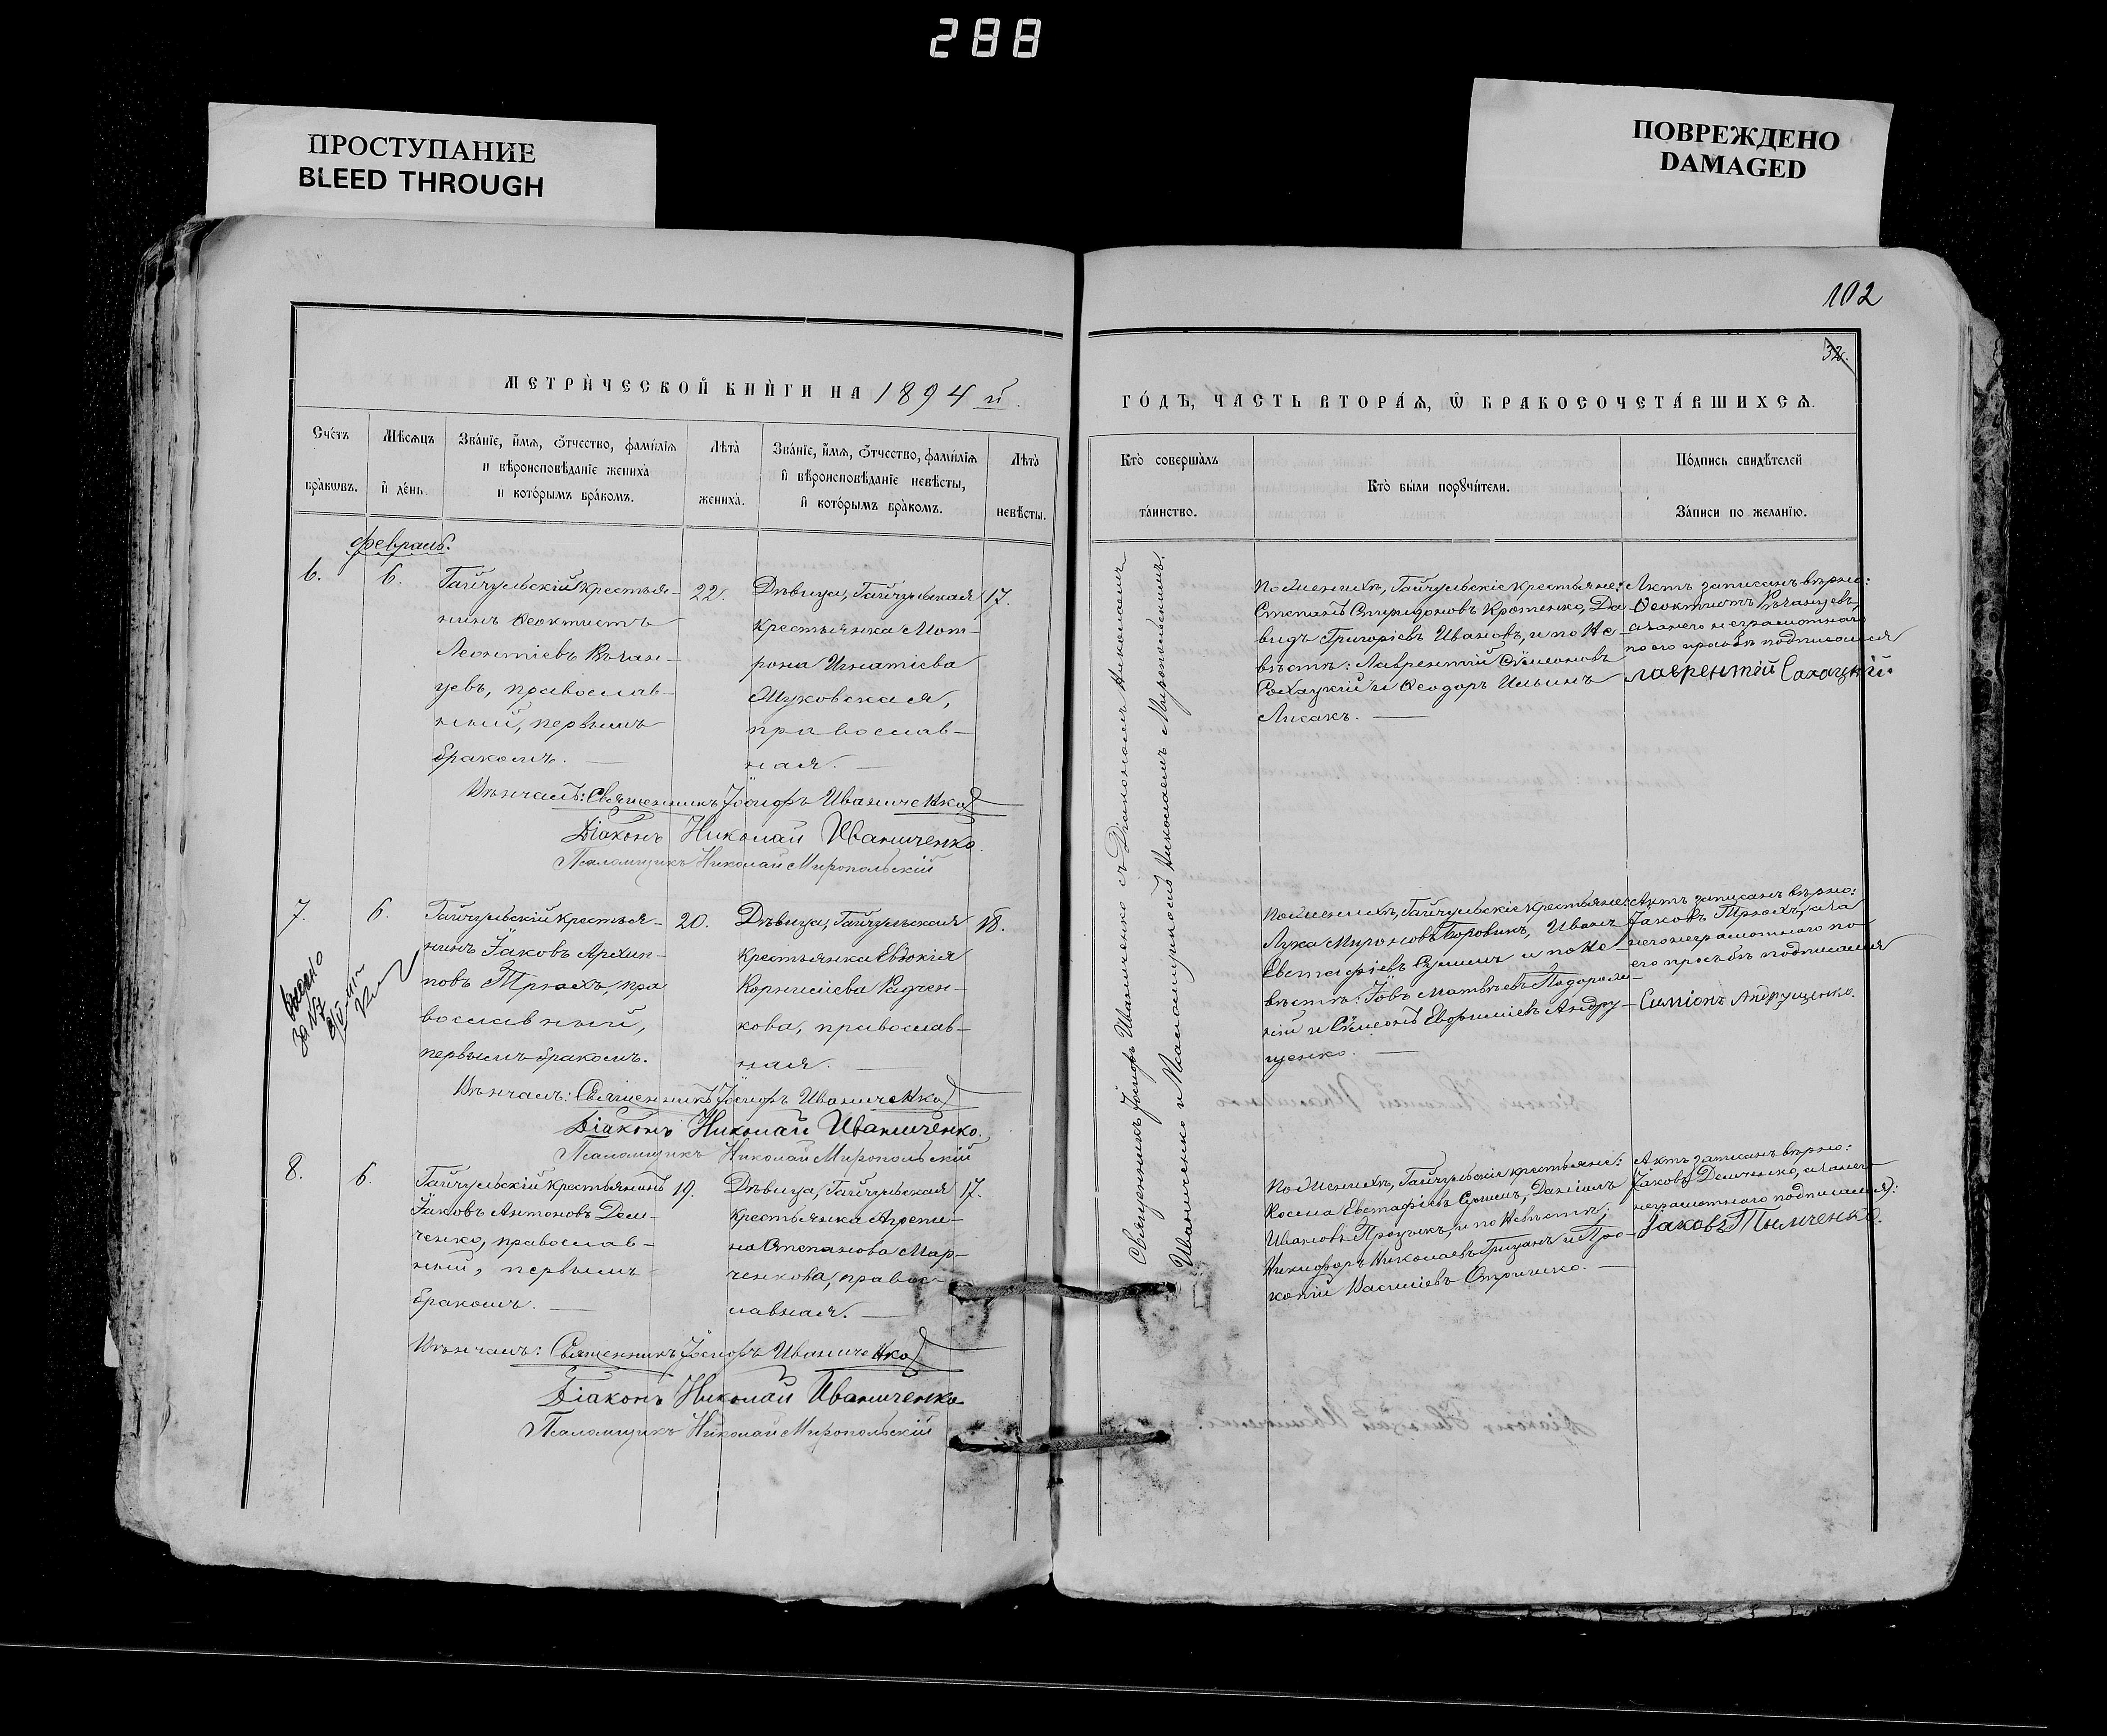 288
ПРОСТУПАНИЕ
BLEED THROUGH
ПОВРЕЖДЕНО
DAMAGED
102
32.
МЕТРИ́ЧЕСКОЙ КНИ́ГИ НА 1894 й.
Сче́тъ бра́кѡвъ.
Мѣ́сѧцъ и҆ де́нь.
Зва́нїе, и҆́мѧ, ѻ҆́тчество, фами́лїѧ
и вѣроисповѣ́данїе жениха̀
и кото́рымъ бра́комъ.
Лѣта̀ жениха̀.
Зва́нїе, и҆́мѧ, ѻ҆́тчество, фами́лїѧ
и҆ вѣроисповѣ́данїе невѣ́сты,
и҆ кото́рымъ бра́комъ.
Лѣта̀ невѣ́сты.
Февраль.
6.
6.
Гайчульскій крестья-
нинъ Ѳеоктистъ
Леонтіевъ
православ-
ный, первымъ
бракомъ.
22.
Дѣвица, Гайчульская
крестьянка Мот-
рона Игнатіева
Жуковская,
православ-
ная.
17.
Вѣнчалъ: Священникъ Іосифъ Иваниченко
Діаконъ Николай Иваниченко.
Псаломщикъ Николай Миропольскій
7.
6.
Гайчульскій крестья-
нинъ Іаковъ Архип-
повъ Трюхъ, пра
вославный,
первымъ бракомъ.
20.
Дѣвица, Гайчульская
крестьянка Евдокія
Корниліева Радчен-
кова, православ-
ная.
18.
Вѣнчалъ: Священникъ Іосифъ Иваниченко
Діаконъ Николай Иваниченко.
Псаломщикъ Николай Миропольскій
8.
6.
Гайчульскій крестьянинъ
Іаковъ Антоновъ Дем-
ченко, православ-
ный, первымъ
бракомъ.
19.
Дѣвица, Гайчульская
крестьянка Агрепи-
на Степанова Мар-
ченкова, правос-
лавная.
17.
Вѣнчалъ: Священникъ Іосифъ Иваниченко
Діаконъ Николай Иваниченко
Псаломщикъ Николай Миропольскій
ГО́ДЪ, ЧАСТЬ ВТОРА́Ѧ, Ѽ БРАКОСОЧЕТА́ВШИХСѦ.
Кто̀ соверша́лъ та́инство.
Кто̀ бы́ли порꙋчи́тели.
По́дпись свидѣ́телей
За́писи по жела́нїю.
Священникъ Іосифъ Иваниченко съ Діакономъ Николаемъ
Иваниченко и Псаломщикомъ Николаемъ Миропольскимъ.
По женихѣ, Гайчульскіе крестьяне:
Степанъ Спиридоновъ Кротенко, Да-
видъ Григоріевъ Ивановъ, и по Не-
вѣстѣ: Лаврентій Сѵмеоновъ
Сахацкій и Ѳеодоръ Ильинъ
Лисакъ.
Актъ записанъ вѣрно:
Ѳеоктистъ
а за него неграмотнаго
по его прозьбѣ подписался
Лаврентій Сахацкій.
По женихѣ, Гайчульскіе крестьяне:
Лука Мироновъ Боровикъ, Иванъ
Евстафіевъ и по Не-
вѣстѣ: Іовъ Матвѣевъ
и Сѵмеонъ Евфиміевъ Андру-
щенко.
Актъ записанъ вѣрно:
Іаковъ Трюхъ, а за
него неграмотнаго по
его просьбѣ подписался
Симіонъ Андрущенко.
По женихѣ, Гайчульскіе крестьяне:
Косма Евстафіевъ Даніилъ
Ивановъ и по Невѣстѣ:
Никифоръ Николаевъ Грицанъ и Про-
копій Василіевъ
Актъ записанъ вѣрно:
Іаковъ Демченко, а за него
неграмотнаго подписался:
Іаковъ